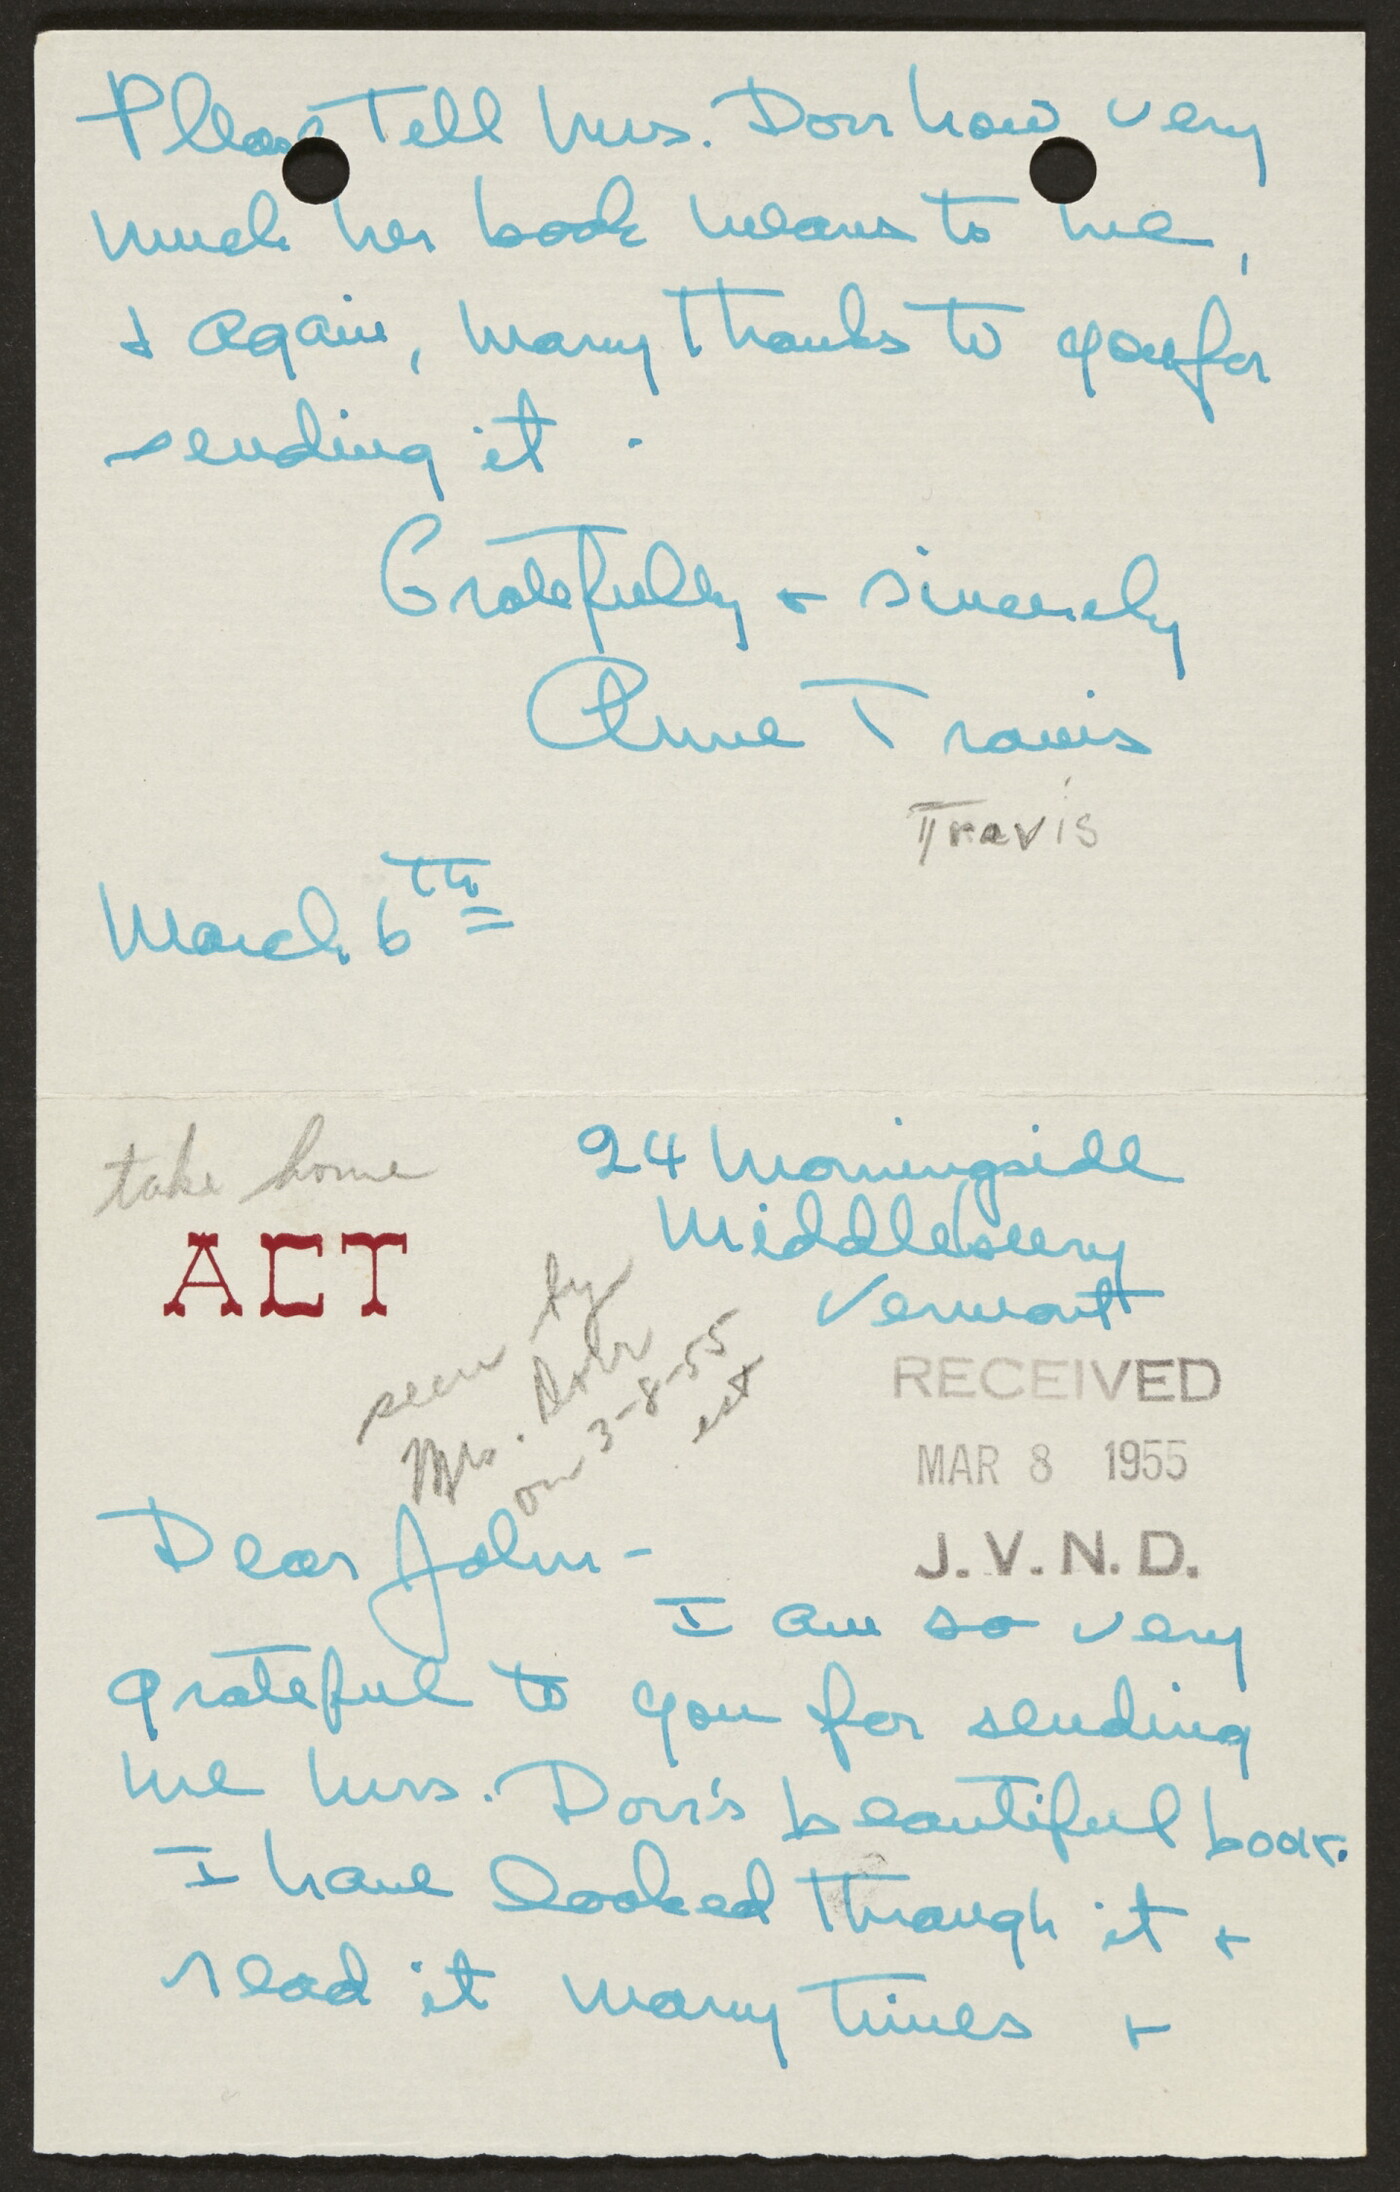 Please Tell Mrs. Dorr how very
much her book means to me,
& again, many Thanks to you for
sending it.
Gratefully & sincerely
Anne Travis
Travis
March 6th
take home
24 Morningside
Middlebury
Vermont
ACT
seen by
Mrs. Dorr
on 3-8-55
RECEIVED
MAR 8 1955
J.V.N.D.
Dear John -
I am so very
grateful to you for sending
me Mrs. Dorr's beautiful book.
I have looked Through it &
read it many Times &